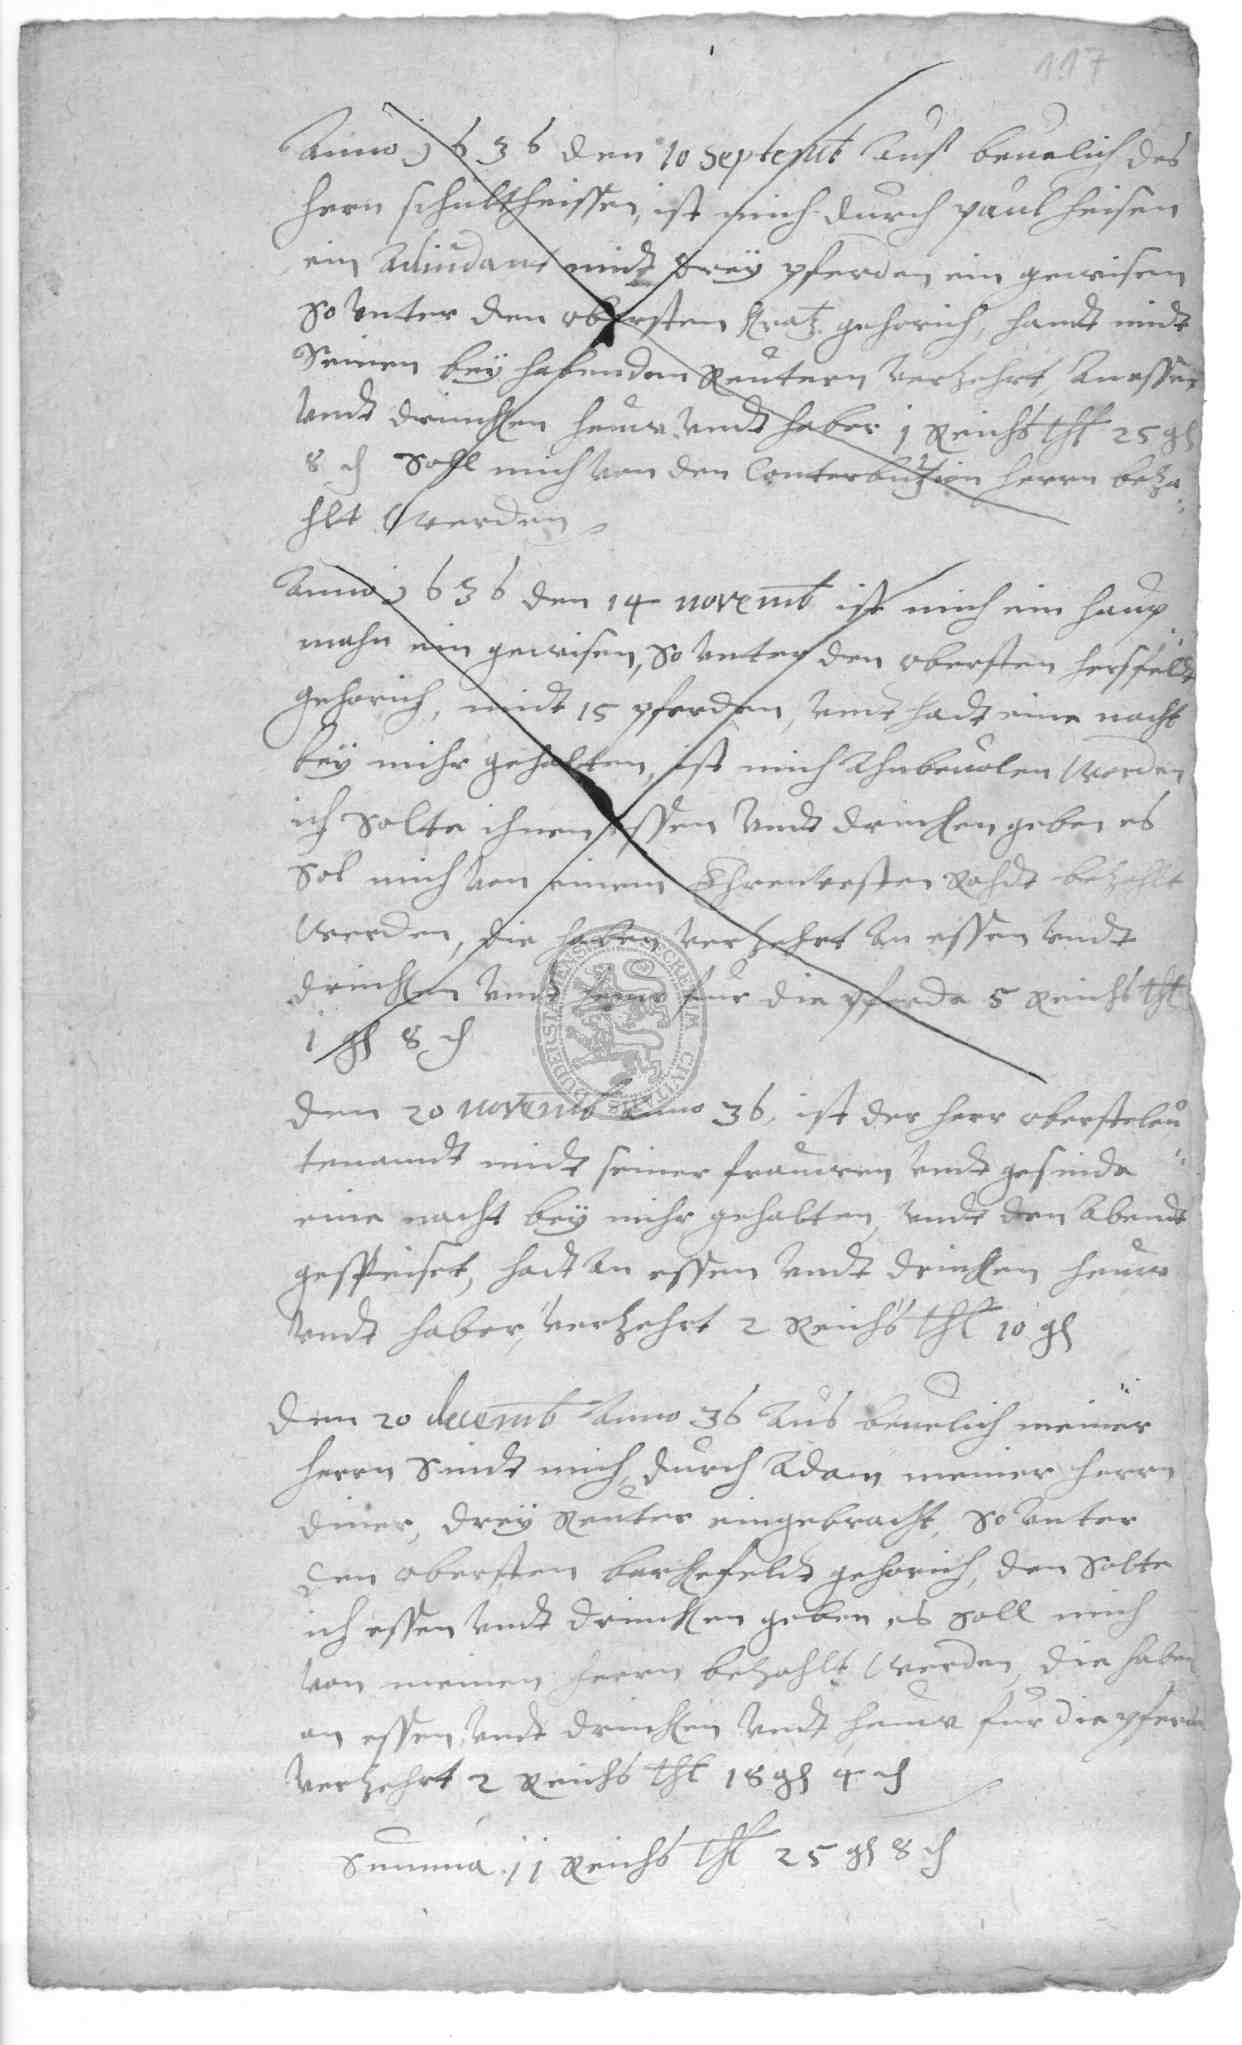 117
Anno 1636 den 10 Septemb Aus beuelich des
hern schultheissen, ist mich durch paul heisen
ein Adiudant midt drey pferden ein gewisen
So Vnter den obersten Kratz gehorich, hadt midt
Seinen bey habenden Reutern verzehrt An essen
Vndt drincken heuw Vndt haber 1 Reichs thl 25 gl
8 d Sohl mich von den Conterbuzion herrn beza
hlt werden
Anno 1636 den 14 novemb ist mich ein haup
mahn ein gewisen, So Vnter den obersten hersfeldt
gehorich, midt 15 pferden, Vndt hadt eine nacht
bey mihr gehalten, ist mich Anbeuolen worden
ich Solte ihnen essen Vndt drincken geben es
Sol mich von einem Ehrenvesten Rahdt bezahlt
werden, die haben verzehrt An essen Vndt
drincken Vndt heuw fur die pferde 5 Reichs thl
1 gl 8 d
SECRETUM CIVITATIS DUDERSTADENSIS
den 20 novemb Anno 36, ist der herr obersteleu
tenandt midt seiner frauwen Vndt gesinde
eine nacht bey mihr gehalten Vndt den Abendt
gespeiset, hadt An essen Vndt drincken heuw
Vndt haber, verzehrt 2 Reichs thl 10 gl
den 20 decemb Anno 36 Aus beuelich meiner
herrn Sindt mich durch Adam meiner herrn
diner, drey Reuter eingebracht, So Vnter
den obersten barckefeldt gehorich, den Solte
ich essen Vndt drincken geben es Soll mich
von meinen herrn bezahlt werden, die haben
an essen Vndt drincken Vndt heuw fur die pferde
verzehrt 2 Reichs thl 18 gl 4 d
Summa 11 Reichs thl 25 gl 8 d